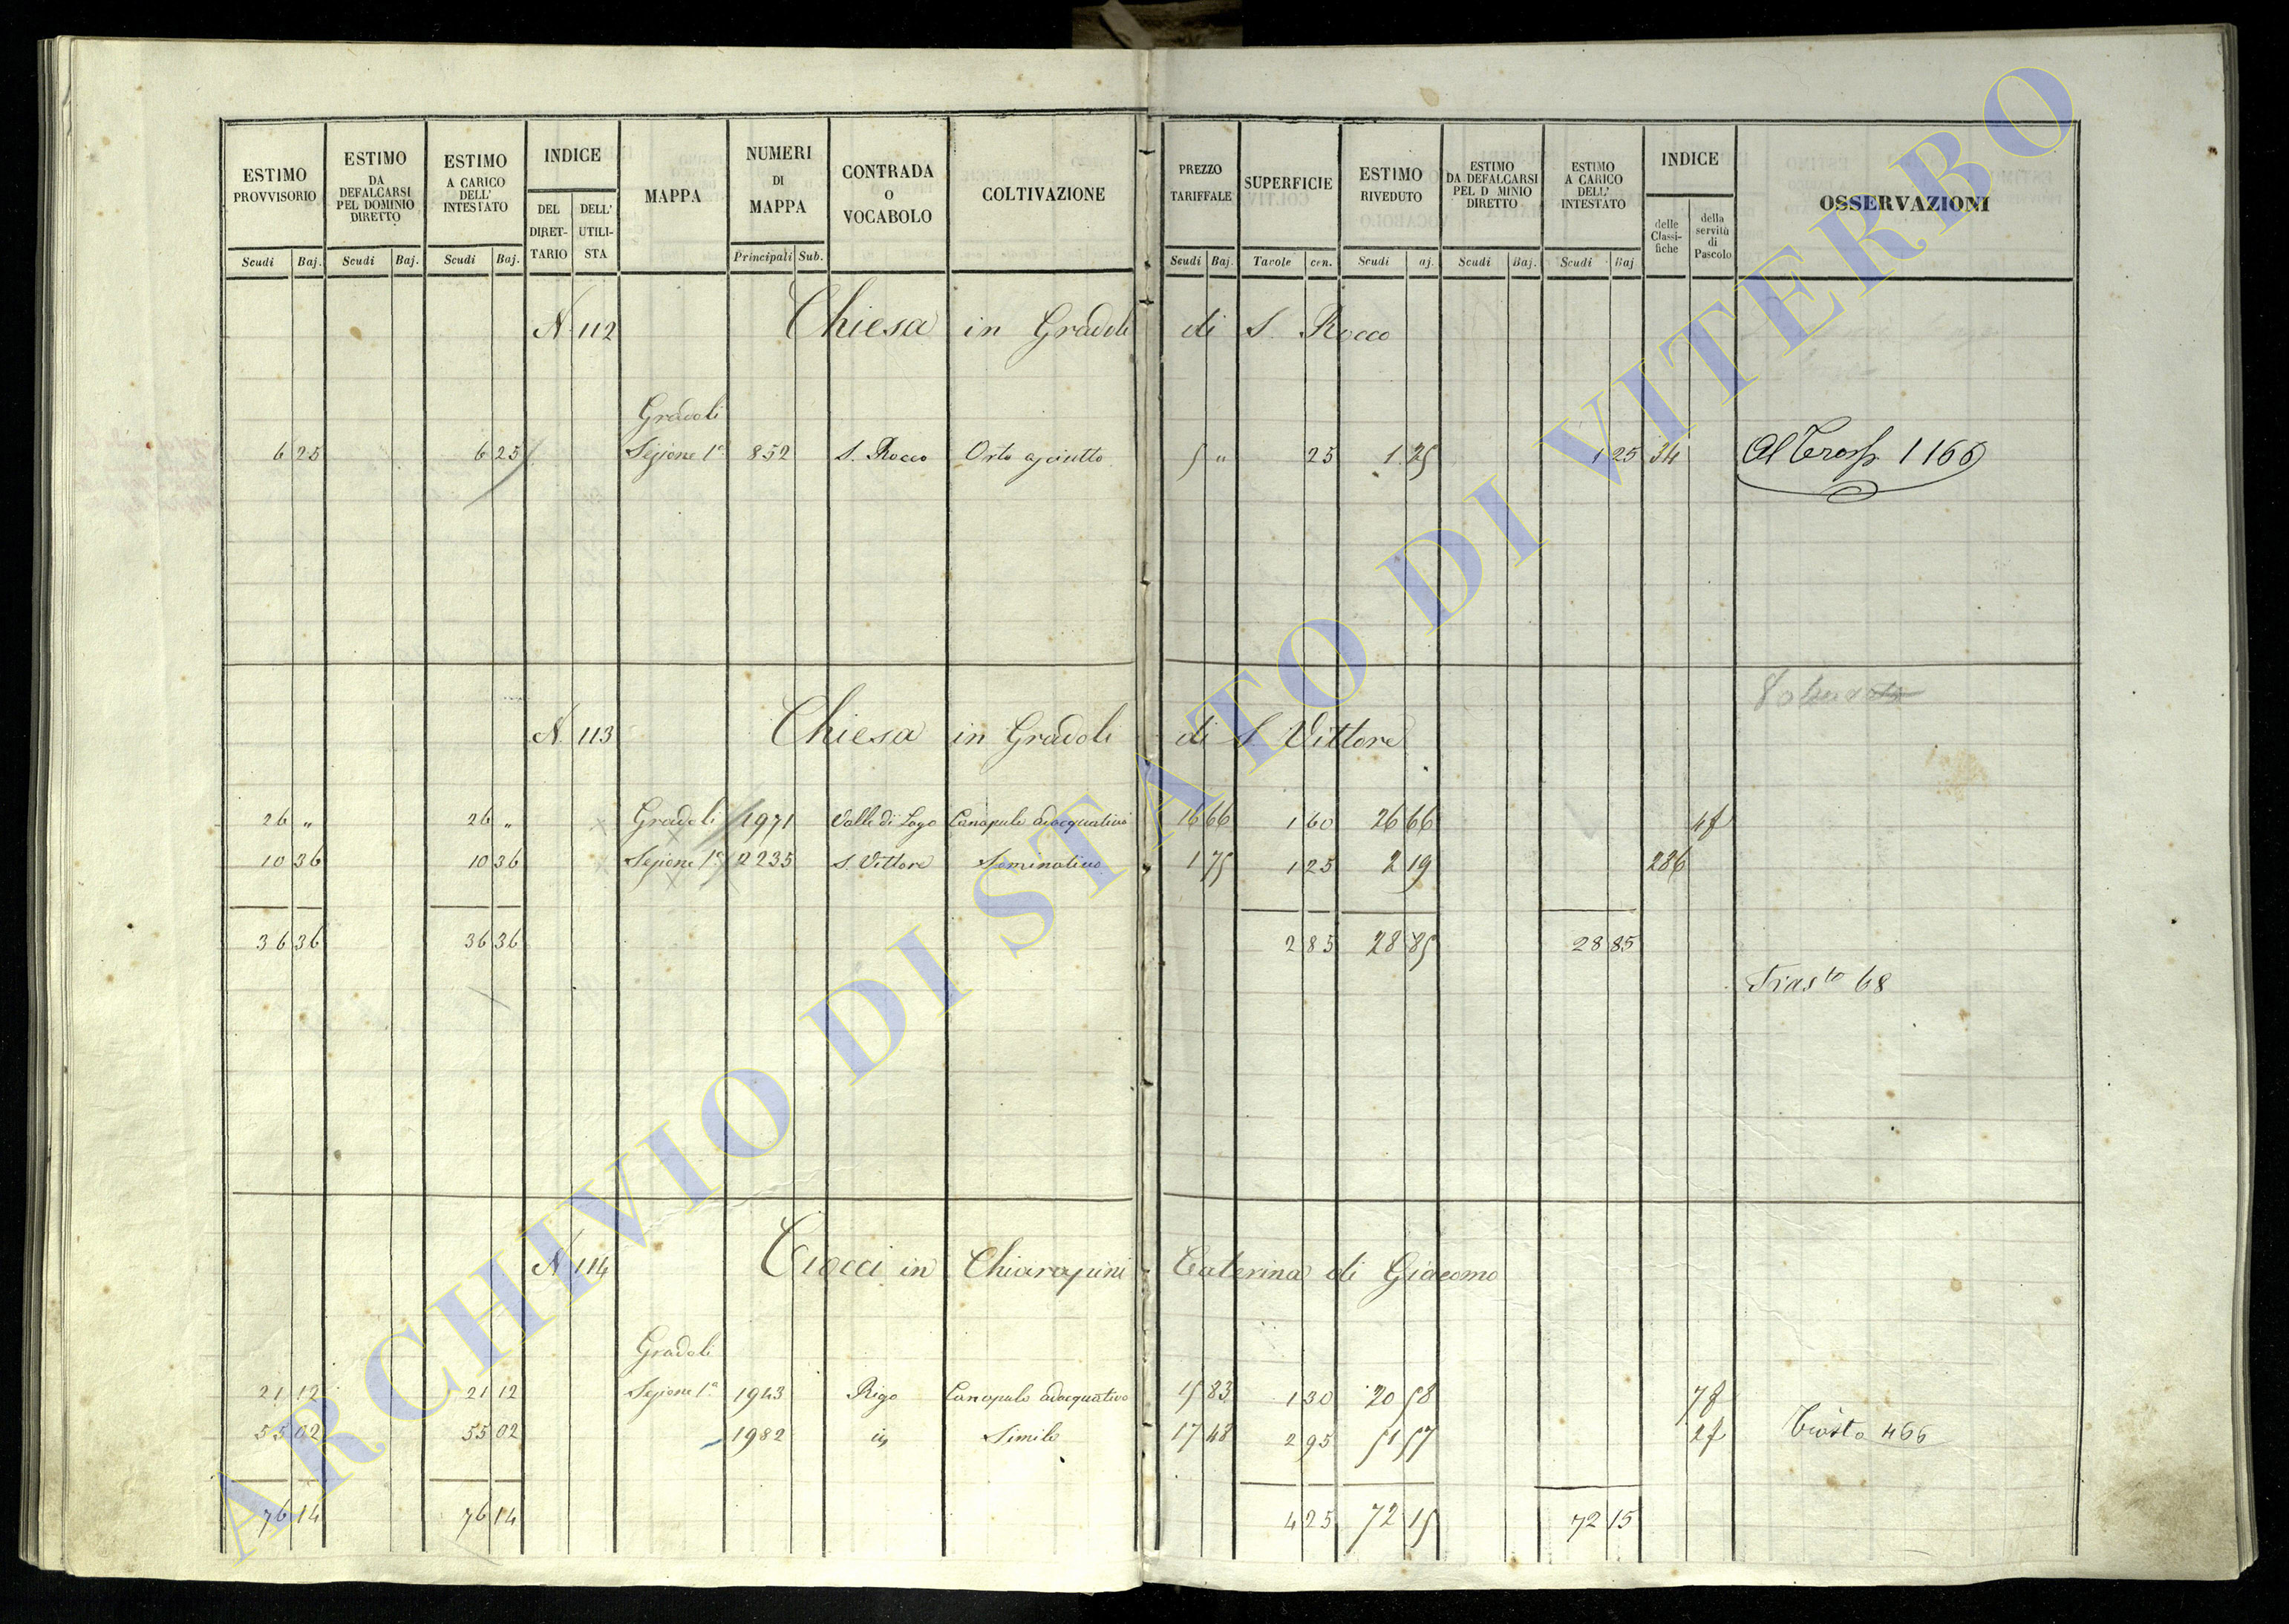 ESTIMO PROVVISORIO | ESTIMO DA DEFALCARSI PEL DOMINIO DIRETTO | ESTIMO A CARICO DELL' INTESTATO | INDICE | MAPPA | NUMERI DI MAPPA | CONTRADA O VOCABOLO | COLTIVAZIONE | PREZZO TARIFFALE | SUPERFICIE | ESTIMO RIVEDUTO | ESTIMO DA DEFALCARSI PEL D MINIO DIRETTO | ESTIMO A CARICO DELL' INTESTATO | INDICE | OSSERVAZIONI
DEL DIRET-TARIO | DELL' UTILI-STA | delle Classi-fiche | della servitù di Pascolo
Scudi | Baj. | Scudi | Baj. | Scudi | Baj. | Principali | Sub. | Scudi | Baj. | Tavole | cen. | Scudi | aj. | Scudi | Baj. | Scudi | Baj
N 112 Chiesa in Gradoli di S. Rocco
Gradoli
6 25 | 6 25 | Sezione 1a | 852 | S. Rocco | Orto asciutto | 5 " | 25 | 1 25 | 1 25 | 34 | Al Trasp. 1166
N 113 Chiesa in Gradoli di S Vittore
26 " | 26 " | Gradoli | 1971 | Valle di Lago | Canapule adacquativo | 16 66 | 1 60 | 26 66 | 4f
10 36 | 10 36 | Sezione 1a | 2235 | S. Vittore | Seminativo | 1 75 | 1 25 | 2 19 | 286
36 36 | 36 36 | 2 85 | 28 85 | 28 85
Trasto 68
N 114 Ciocci in Chiarapini Caterina di Giacomo
Gradoli
21 12 | 21 12 | Sezione 1a | 1943 | Rigo | Canapule adacquativo | 15 83 | 1 30 | 20 58 | 7f
55 02 | 55 02 | 1982 | Simile | 17 48 | 2 95 | 51 57 | 2f | Trasto 466
76 14 | 76 14 | 4 25 | 72 15 | 72 15
ARCHIVIO DI STATO DI VITERBO